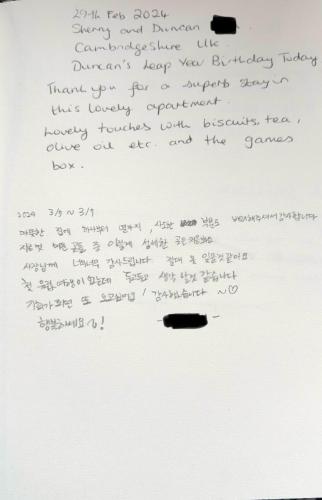 29th Feb 2024
Sherry and Duncan
Cambridgeshire Uk.
Duncan's Leap Year Birthday Today
Thank you for a superb stay in
this lovely apartment.
Lovely touches with biscuits, tea,
olive oil etc. and the games
box.
2024 3/5 ~ 3/9
따뜻한 집에 하나부터 열까지, 사소한 부분도
중 이렇게 섬세한 곳은
사장님께 너무너무 감사드립니다 절대 못 잊을것 같아요
첫 유럽 여행이 되었는데 두고두고 생각 날것 같습니다
또 오고싶어요! 감사했습니다 ~♡
행복하세요!